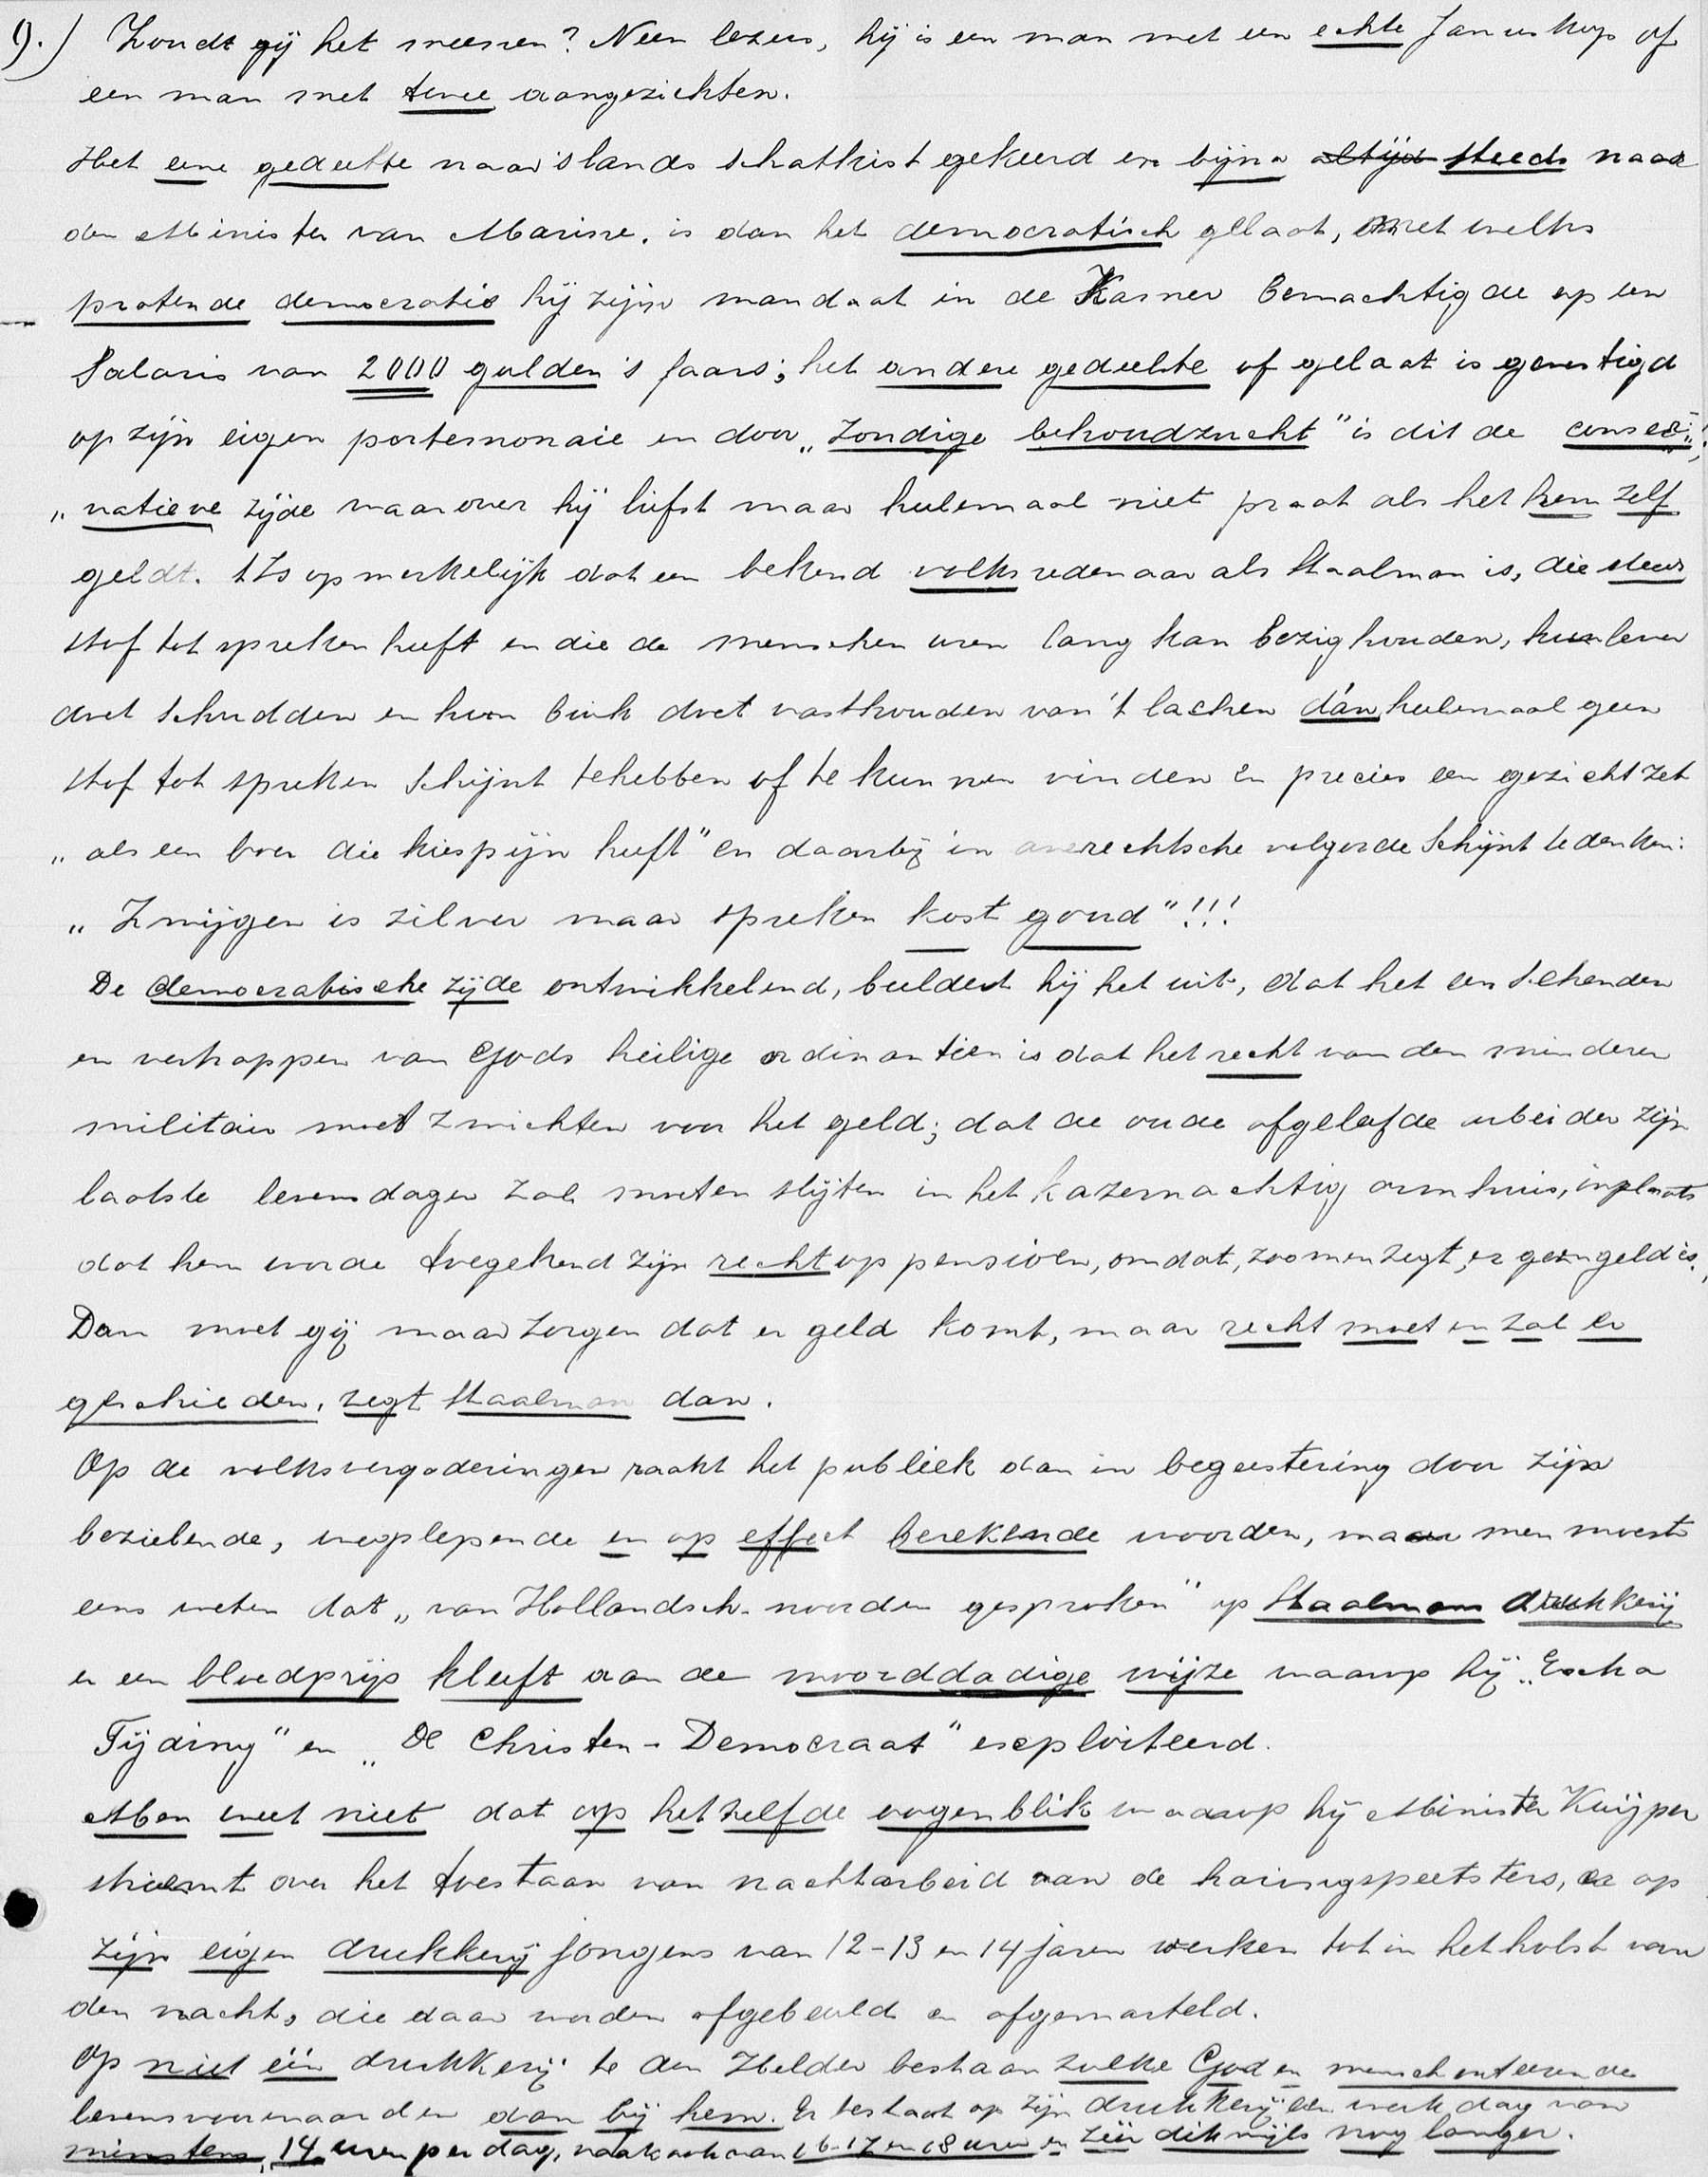 9.) Zoudt gij het meenen? Neen lezers, hij is een man met een echte Januskop of
een man met twee aangezichten.
Het eene gedeelte naar 'slands schatkist gekeerd en bijna altijd steeds naar
den Minister van Marine, is dan het democratisch gelaat, met welks
pratende democratie hij zijn mandaat in de Kamer bemachtigde op een
Salaris van 2000 gulden 's jaars; het andere gedeelte of gelaat is gevestigd
op zijn eigen portemonaie en door „zondige behoudzucht" is dit de conser„
„vatieve zijde waarover hij liefst maar heelemaal niet praat als het hem zelf
geldt. 't Is opmerkelijk dat een bekend volksredenaar als Staalman is, die steeds
stof tot spreken heeft en die de menschen uren lang kan bezighouden, hun lever
doet schudden en hun buik doet vasthouden van 't lachen dán heelemaal geen
stof tot spreken schijnt tehebben of te kunnen vinden en precies een gezicht zet
„als een boer die kiespijn heeft" en daarbij in averechtsche volgorde schijnt te denken:
„Zwijgen is zilver maar spreken kost goud"!!!
De democratische zijde ontwikkelend, buldert hij het uit, dat het een schenden
en vertrappen van Gods heilige ordinantiën is dat het recht van den minderen
militair moet zwichten voor het geld; dat de oude afgeleefde arbeider zijn
laatste levensdagen zal moeten slijten in het kazernachtig armhuis, inplaats
dat hem worde toegekend zijn recht op pensioen, omdat, zoo men zegt, er geen geld is.
Dan moet gij maar zorgen dat er geld komt, maar recht moet en zal er
geschieden, zegt Staalman dan.
Op de volksvergaderingen raakt het publiek dan in begeestering door zijn
bezielende, wegslepende en op effect berekende woorden, maar men moest
eens weten dat „van Hollandsch-noorden gesproken" op Staalman drukkerij
er een bloedprijs kleeft aan de moorddadige wijze waarop hij „Extra
Tijding" en „De Christen-Democraat" exploiteerd.
Men weet niet dat op hetzelfde oogenblik waarop hij Minister Kuijper
striemt over het toestaan van nachtarbeid aan de haringspeetsters, er op
zijn eigen drukkerij jongens van 12-13 en 14 jaren werken tot in het holst van
den nacht, die daar worden afgebeuld en afgemarteld.
Op niet één drukkerij te den Helder bestaan zulke God en mensch onteerende
levensvoorwaarden dan bij hem. Er bestaat op zijn drukkerij een werkdag van
minstens, 14 uren per dag, vaak ook van 16-17 en 18 uren en zéér dikwijls nog langer.